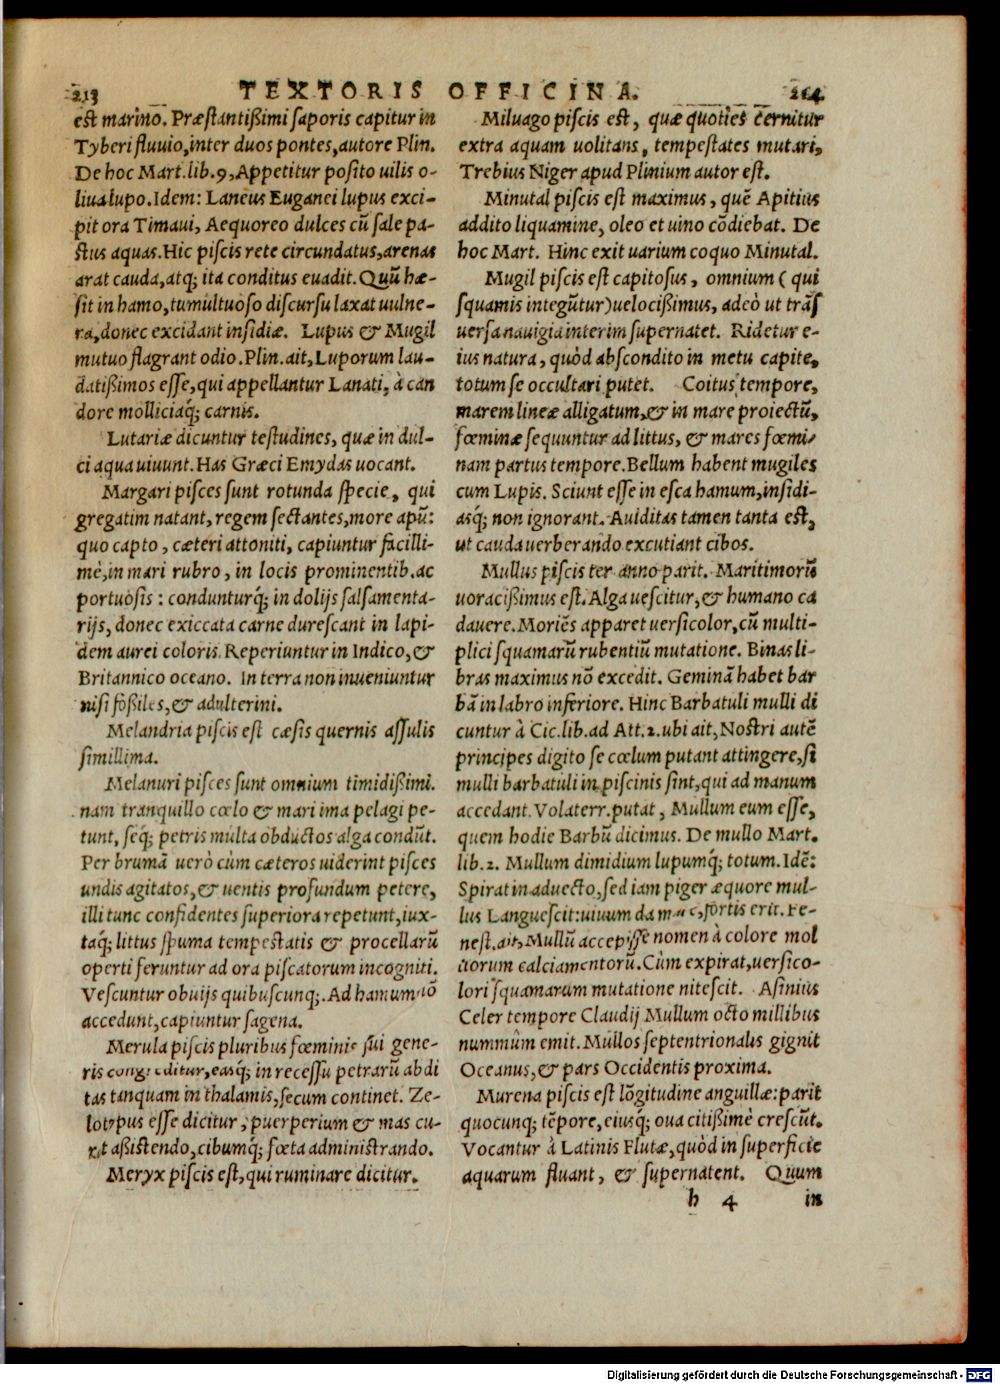 213 TEXTORIS OFFICINA. 214
est marino. Præstantißimi saporis capitur in
Tyberi fluuio, inter duos pontes, autore Plin.
De hoc Mart. lib. 9, Appetitur posito uilis o-
liua lupo. Idem: Laneus Euganei lupus exci-
pit ora Timaui, Aequoreo dulces cū sale pa-
stus aquas. Hic piscis rete circundatus, arenas
arat cauda, atq; ita conditus euadit. Quū hæ-
sit in hamo, tumultuoso discursu laxat uulne-
ra, donec excidant insidiæ. Lupus & Mugil
mutuo flagrant odio. Plin. ait, Luporum lau-
datißimos esse, qui appellantur Lanati, à can
dore molliciaq́; carnis.
Lutariæ dicuntur testudines, quæ in dul-
ci aqua uiuunt. Has Græci Emydas uocant.
Margari pisces sunt rotunda specie, qui
gregatim natant, regem sectantes, more apū:
quo capto, cæteri attoniti, capiuntur facilli-
mè, in mari rubro, in locis prominentib. ac
portuosis: condunturq́; in dolijs salsamenta-
rijs, donec exiccata carne durescant in lapi-
dem aurei coloris. Reperiuntur in Indico, &
Britannico oceano. In terra non inueniuntur
nisi fossiles, & adulterini.
Melandria piscis est cæsis quernis assulis
simillima.
Melanuri pisces sunt omnium timidißimi.
nam tranquillo cœlo & mari ima pelagi pe-
tunt, seq́; petris multa obductos alga condūt.
Per brumā uerò cùm cæteros uiderint pisces
undis agitatos, & uentis profundum petere,
illi tunc confidentes superiora repetunt, iux-
taq́; littus spuma tempestatis & procellarū
operti feruntur ad ora piscatorum incogniti.
Vescuntur obuijs quibuscunq;. Ad hamum nō
accedunt, capiuntur sagena.
Merula piscis pluribus fœminis sui gene-
ris congreditur, easq́; in recessu petrarū abdi
tas tanquam in thalamis, secum continet. Ze-
lotypus esse dicitur, puerperium & mas cu-
rat aßistendo, cibumq́; fœta administrando.
Meryx piscis est, qui ruminare dicitur.
Miluago piscis est, quæ quoties cernitur
extra aquam uolitans, tempestates mutari,
Trebius Niger apud Plinium autor est.
Minutal piscis est maximus, quē Apitius
addito liquamine, oleo et uino cōdiebat. De
hoc Mart. Hinc exit uarium coquo Minutal.
Mugil piscis est capitosus, omnium (qui
squamis integūtur) uelocißimus, adeò ut trās
uersa nauigia interim supernatet. Ridetur e-
ius natura, quòd abscondito in metu capite,
totum se occultari putet. Coitus tempore,
marem lineæ alligatum, & in mare proiectū,
fœminæ sequuntur ad littus, & mares fœmi-
nam partus tempore. Bellum habent mugiles
cum Lupis. Sciunt esse in esca hamum, insidi-
asq́; non ignorant. Auiditas tamen tanta est,
ut cauda uerberando excutiant cibos.
Mullus piscis ter anno parit. Maritimorū
uoracißimus est. Alga uescitur, & humano ca
dauere. Moriēs apparet uersicolor, cū multi-
plici squamarū rubentiū mutatione. Binas li-
bras maximus nō excedit. Geminā habet bar
bā in labro inferiore. Hinc Barbatuli mulli di
cuntur à Cic. lib. ad Att. 2. ubi ait, Nostri autē
principes digito se cœlum putant attingere, si
mulli barbatuli in piscinis sint, qui ad manum
accedant. Volaterr. putat, Mullum eum esse,
quem hodie Barbū dicimus. De mullo Mart.
lib. 2. Mullum dimidium lupumq́; totum. Idē:
Spirat in aduecto, sed iam piger æquore mul-
lus Languescit: uiuum da mare, fortis erit. Fe-
nest. ait, Mullū accepisse nomen à colore mol
liorum calciamentorū. Cùm expirat, uersico-
lori squamarum mutatione nitescit. Asinius
Celer tempore Claudij Mullum octo millibus
nummûm emit. Mullos septentrionalis gignit
Oceanus, & pars Occidentis proxima.
Murena piscis est lōgitudine anguillæ: parit
quocunq; tēpore, eiusq́; oua citißimè crescūt.
Vocantur à Latinis Flutæ, quòd in superficie
aquarum fluant, & supernatent. Quum
h 4 in
Digitalisierung gefördert durch die Deutsche Forschungsgemeinschaft - DFG